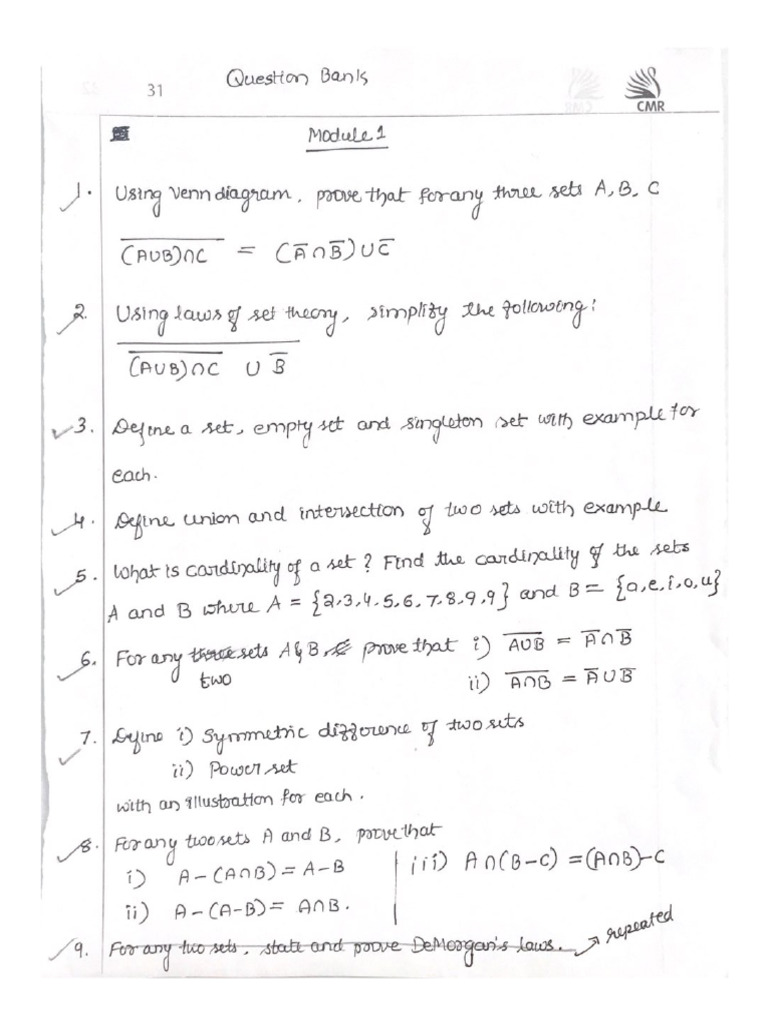 Question Bank
31
CMR
Module 1
1. Using Venn diagram, prove that for any three sets A, B, C
$\overline{(A∪B)∩C}$ = ($\overline{A}$∩$\overline{B}$)∪$\overline{C}$
2. Using laws of set theory, simplify the following:
$\overline{\overline{(A∪B)∩C} ∪ \overline{B}}$
3. Define a set, empty set and singleton set with example for
each.
4. Define union and intersection of two sets with example
5. What is cardinality of a set? Find the cardinality of the sets
A and B where A = {2,3,4,5,6,7,8,9,9} and B = {a,e,i,o,u}
6. For any three sets A & B, prove that i) $\overline{A∪B}$ = $\overline{A}$∩$\overline{B}$
two ii) $\overline{A∩B}$ = $\overline{A}$∪$\overline{B}$
7. Define i) Symmetric difference of two sets
ii) Power set
with an illustration for each.
8. For any two sets A and B, prove that
i) A-(A∩B)=A-B | iii) A∩(B-C)=(A∩B)-C
ii) A-(A-B)= A∩B.
9. For any two sets, state and prove DeMorgan's laws. → repeated